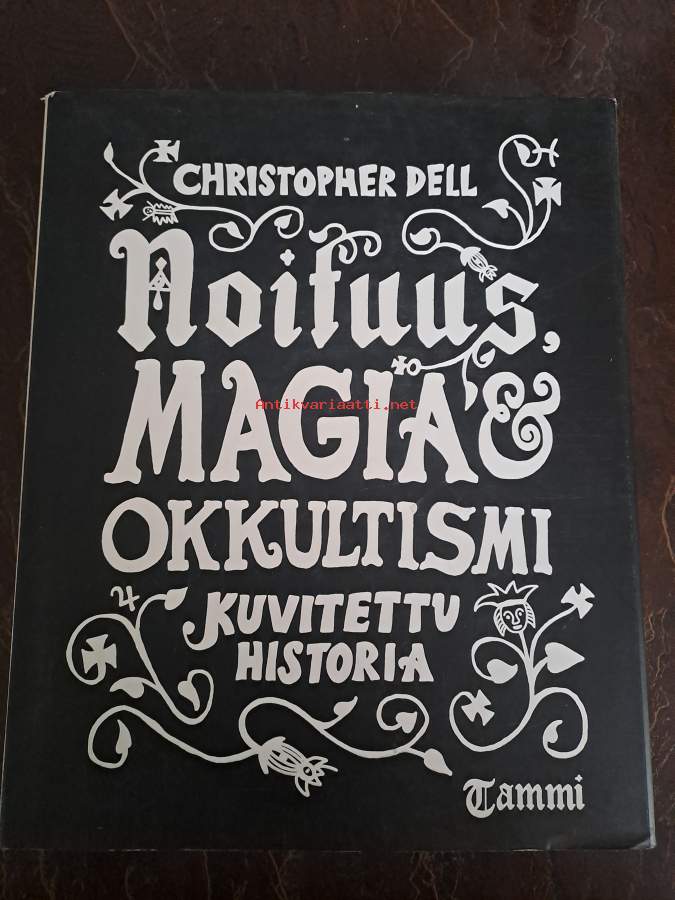 CHRISTOPHER DELL
Noituus,
MAGIA &
Antikvariaatti.net
OKKULTISMI
KUVITETTU
HISTORIA
Tammi